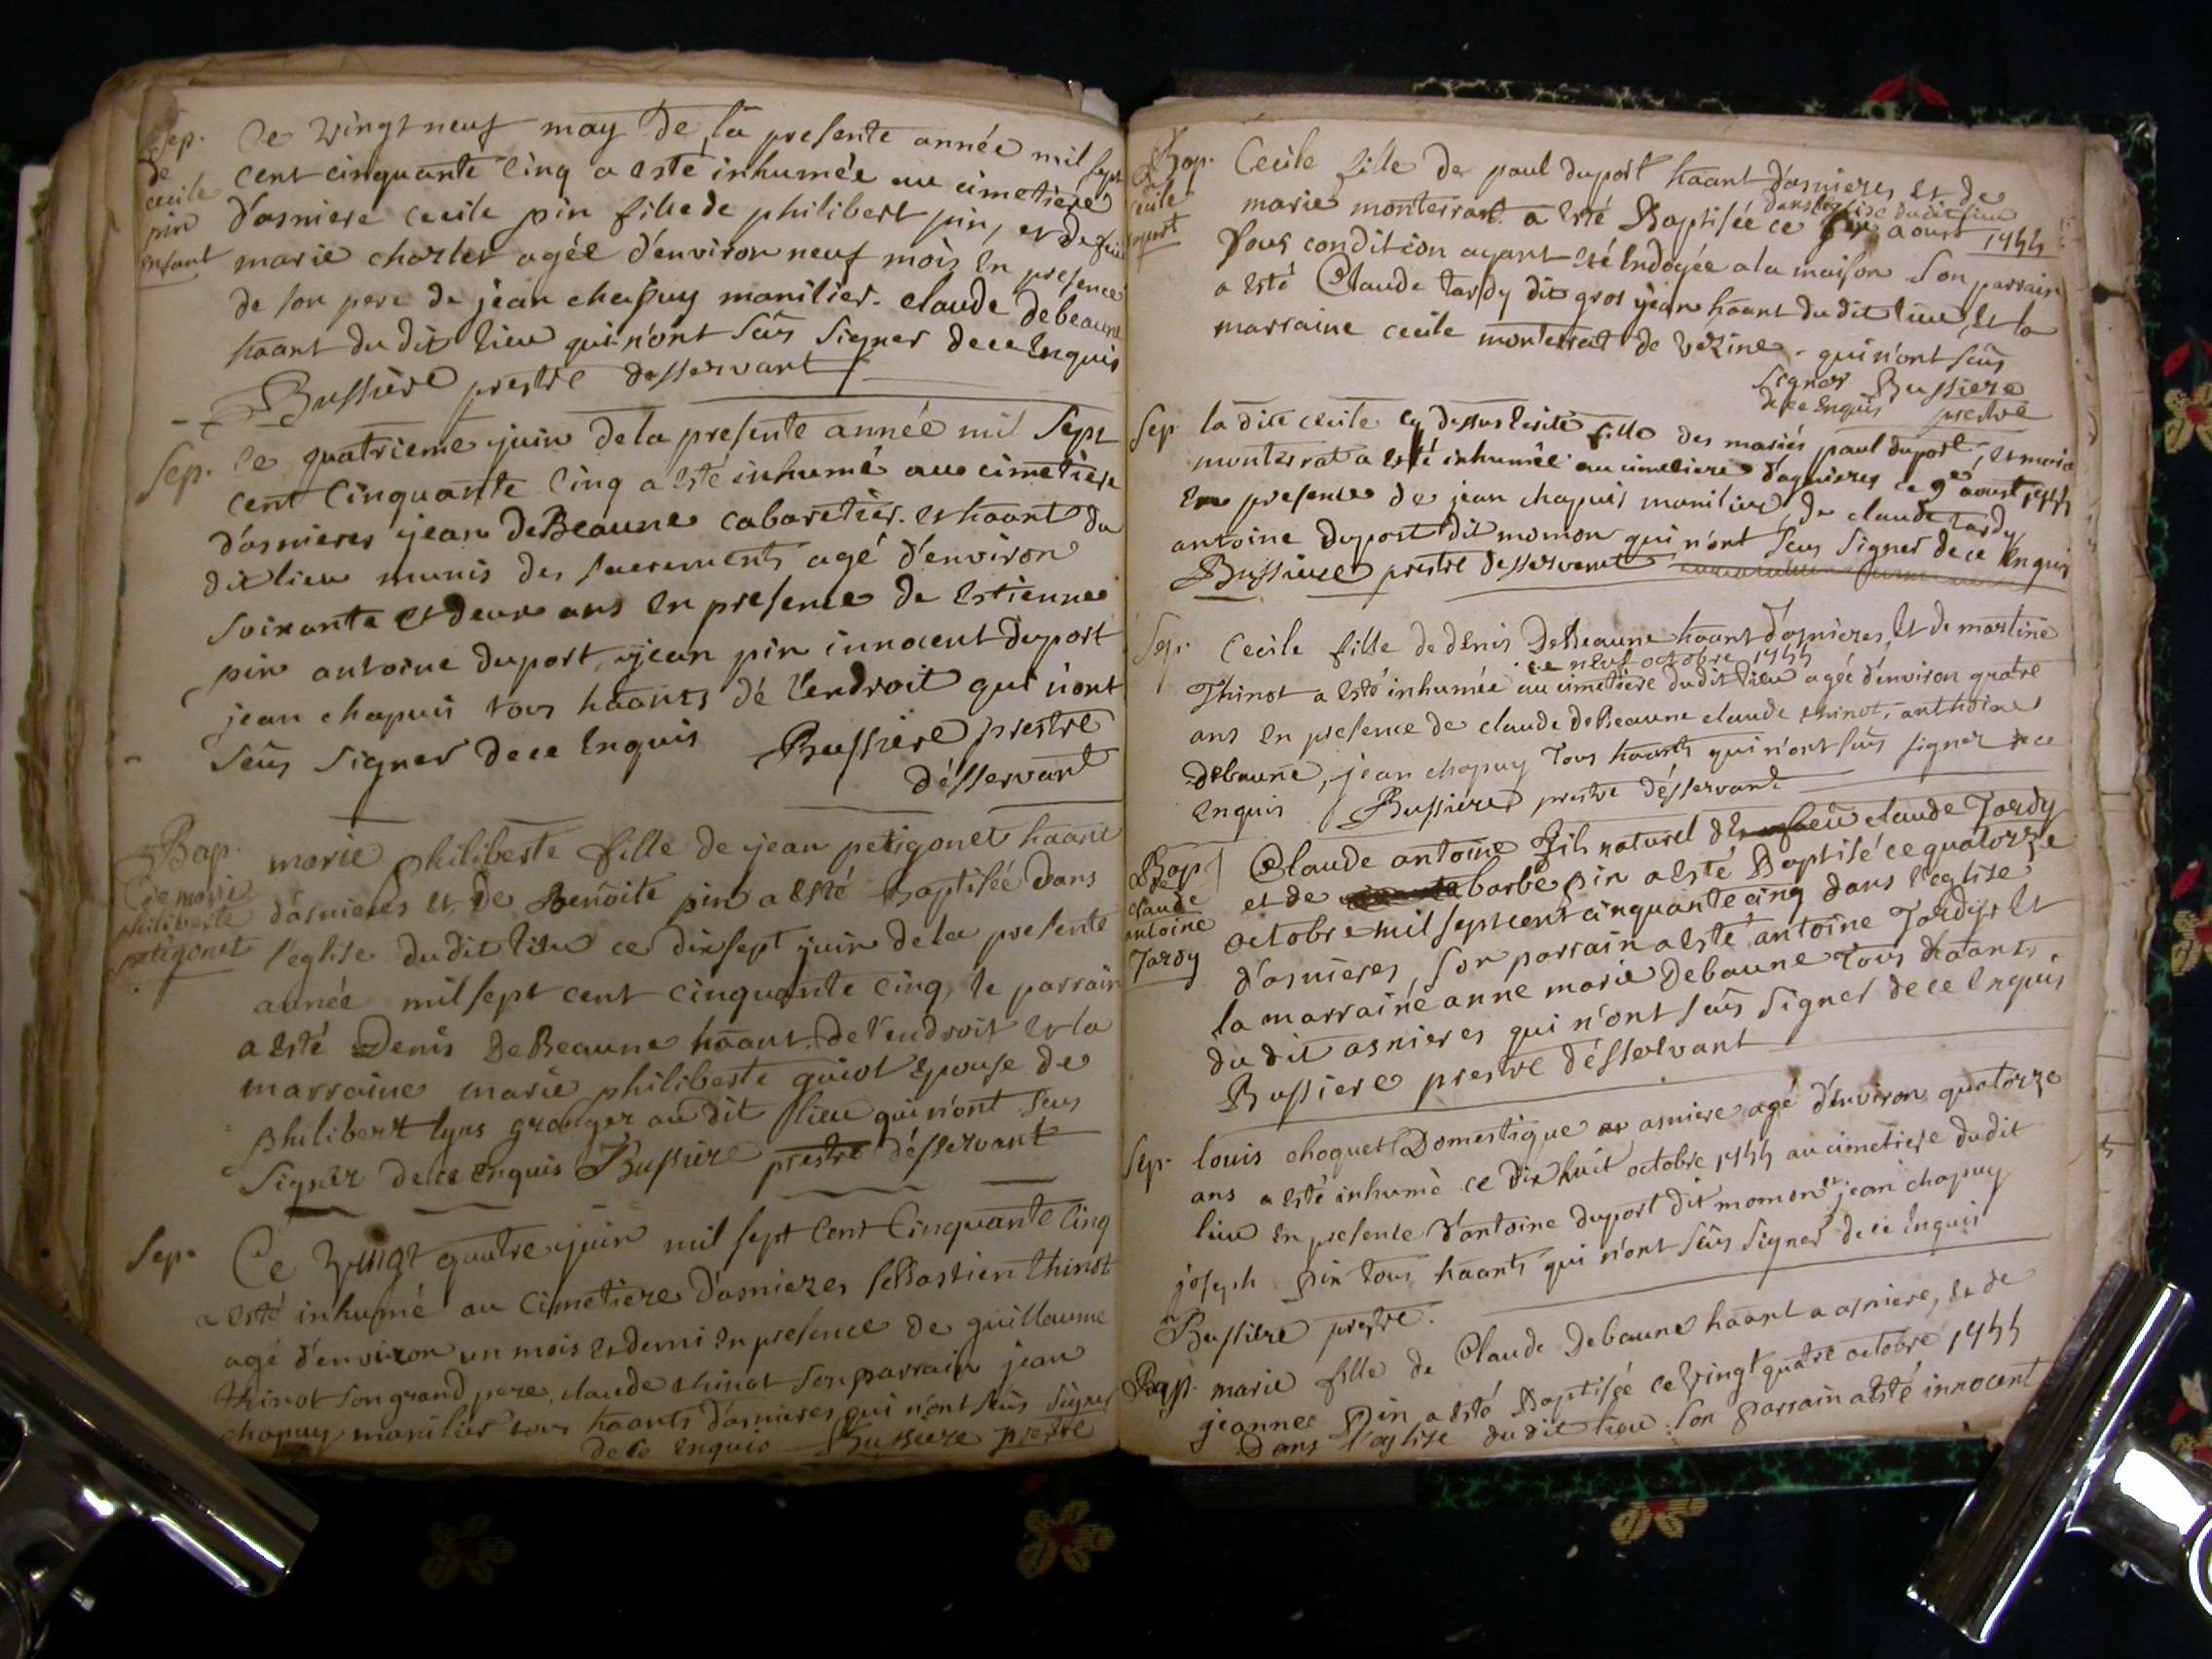 Sep.
de
cecile
pin
enfant
Ce vingt neuf may de la presente année mil sept
cent cinquante cinq a esté inhumée au cimetiere
d'asniere cecile pin fille de philibert pin, et de
marie charlet agée d'environ neuf mois en presence
de son pere de jean chapuy manilier. claude debeaune
haant du dit lieu qui n'ont sçus signer de ce enquis
Bussiere prestre desservant
Sep.
Ce quatrieme juin de la presente année mil sept
cent cinquante cinq a esté inhumé au cimetiere
d'asnieres jean DeBeaune cabaretier. et haant du
dit lieu munis des sacrements agé d'environ
soixante et deux ans en presence de estienne
pin antoine duport, jean pin innocent duport
jean chapuis tous haants dé l'endroit qui n'ont
sçus signer de ce enquis Bussiere prestre
désservant
Bap.
de marie
philiberte
petigonet
marie philiberte fille de jean petigonet haant
d'asnieres et de Benoite pin a esté Baptisée dans
l'eglise du dit lieu ce dixsept juin de la presente
année mil sept cent cinquante cinq, le parrain
a esté Denis DeBeaune haant de l'endroit et la
marraine marie philiberte guiot epouse de
philibert lyns granger au dit lieu qui n'ont sçus
signer de ce enquis Bussiere prestre désservant
Sep.
Ce vingt quatre juin mil sept cent cinquante cinq
a esté inhumé au cimetiere d'asnieres sebastien thinot
agé d'environ un mois et demi en presence de guillaume
thinot son grand pere, claude thinot son parrain jean
chapuy manilier tous haants d'asnieres qui n'ont sçus signer
de ce enquis Bussiere prestre
Bap.
de
cecile
duport
Cecile fille de paul duport haant d'asnieres et de
marie monterrat a esté Baptisée ce aoust 1755
dans l'eglise du dit lieu
sous condition ayant eté endoyée a la maison son parrain
a esté Claude tardy dit gros jean haant du dit lieu, et la
marraine cecile monterrat de vezine - qui n'ont sçus
signer Bussiere
de ce enquis prestre
Sep.
la dite cecile cy dessus escrite fille des mariés paul duport, et marie
monterrat a esté inhumée au cimetiere d'asnieres ce 9e aoust 1755
en presence de jean chapuis manilier, de claude tardy
antoine duport dit momon qui n'ont sçus signer de ce enquis
Bussiere prestre desservant
Sep.
Cecile fille de denis DeBeaune haant d'asnieres, et de martine
ce neuf octobre 1755
Thinot a esté inhumée au cimetiere du dit lieu agée d'environ quatre
ans en presence de claude deBeaune claude thinot, anthoine
debaune, jean chapuy tous haants qui n'ont sçus signer de ce
enquis Bussiere prestre désservant
Bap
de
claude
antoine
Tardy
Claude antoine fils naturel de claude Tardy
et de barbe pin a esté Baptisé ce quatorze
octobre mil sept cent cinquante cinq dans l'eglise
d'asnieres, son parrain a esté antoine Tardy, et
la marraine anne marie debaune tous haants
du dit asnieres qui n'ont sçus signer de ce enquis
Bussiere prestre désservant
Sep.
louis choquet Domestique asniere agé d'environ quatorze
ans a esté inhumé ce dix huit octobre 1755 au cimetiere du dit
lieu en presence d'antoine duport dit momon et jean chapuy
joseph pin tous haants qui n'ont sçus signer de ce enquis
Bussiere prestre.
Bap.
marie fille de Claude Debaune haant a asniere, et de
jeanne Pin a esté Baptisée ce vingt quatre octobre 1755
Dans l'eglise du dit lieu son parrain a esté innocent